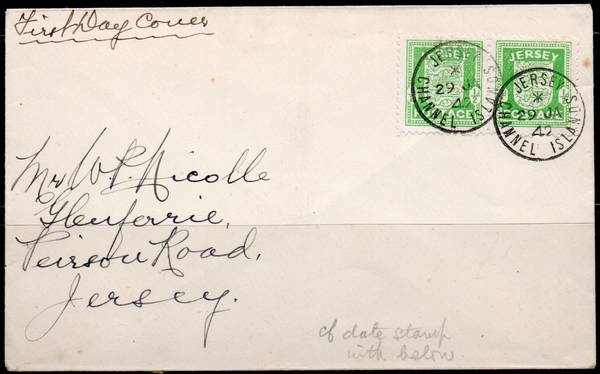 First Day Cover
JERSEY
JERSEY
JERSEY
CHANNEL ISLANDS
29 JA
42
JERSEY
CHANNEL ISLANDS
29 JA
42
Mr W. P. Nicolle
Glenferrie,
Peirson Road,
Jersey.
cf date stamp
with below.